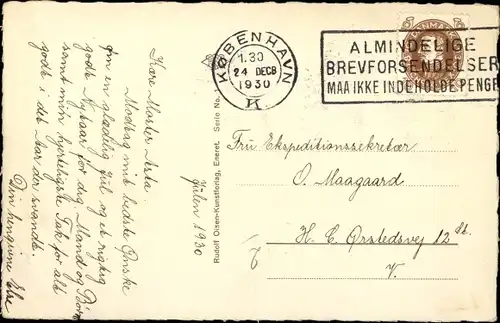 Kære Moster Asta.
Modtag mit bedste Ønske
om en glædelig Jul og et rigtig
godt Nytaar for dig, Mand og Børn
samt min hjerteligste Tak for alt
godt i det Aar der svandt.
Din hengivne Else
Julen 1930
Rudolf Olsen-Kunstforlag, Eneret. Serie No.
KØBENHAVN
1.30
24 DECB
1930
K.
DANMARK
ALMINDELIGE
BREVFORSENDELSER
MAA IKKE INDEHOLDE PENGE
Fru Ekspeditionssekretær
O. Maagaard
H. C. Ørstedsvej 12 St.
V.